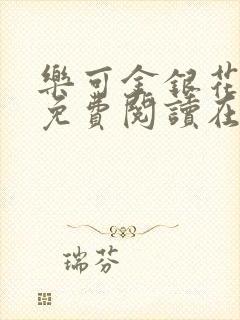 樂可金銀花
免費閱讀在
瑞芬